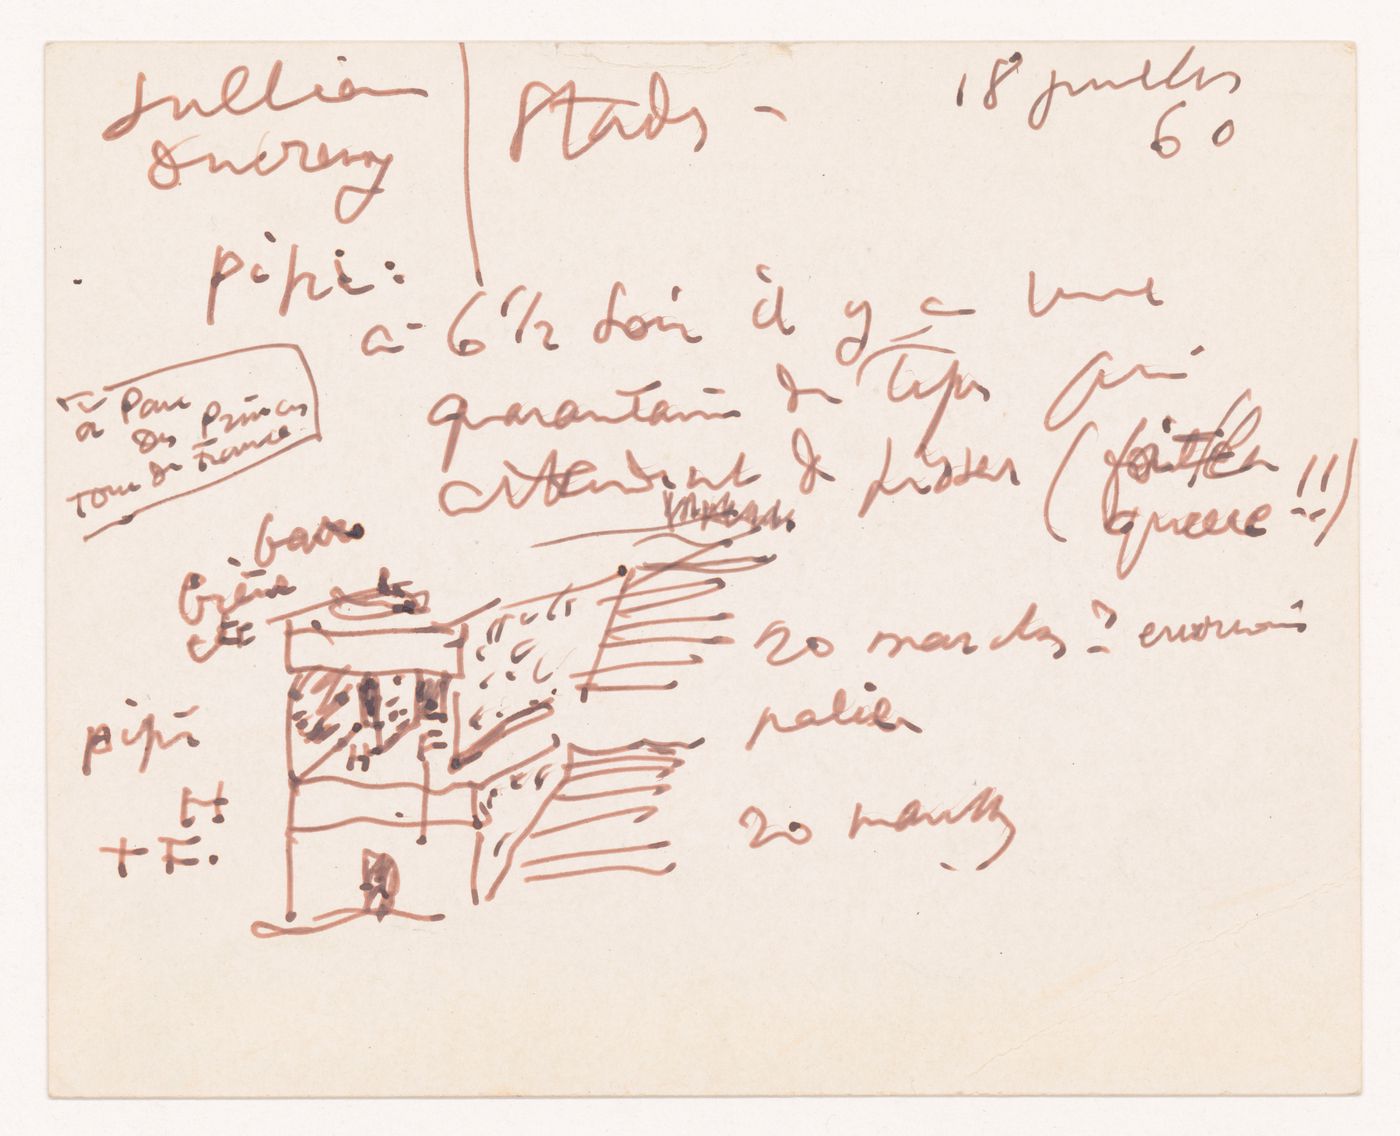 Jullian
Ducrey
Stads -
18 juillet
60
pipi :
à 6 1/2 soir il y a une
quarantaine de types qui
attendent de pisser (font la
queue !!)
au Parc
des Princes
Tour de France
bar
bière
etc
pipi
H
+ F.
H F
20 marches énormes
palier
20 marches